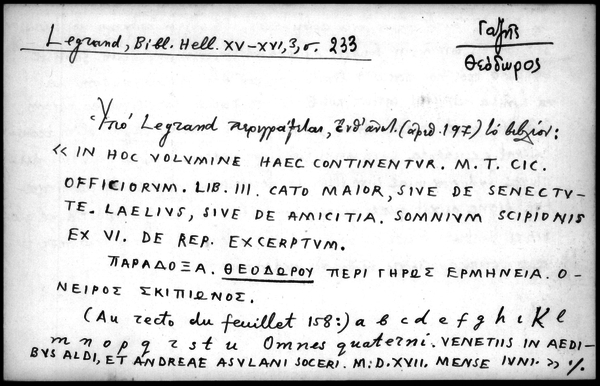 Legrand, Bibl. Hell. XV–XVI, 3, σ. 233
Γαζῆς
Θεόδωρος
Ὑπὸ Legrand περιγράφεται, ἔνθ' ἀνωτ. (ἀριθ. 197) τὸ βιβλίον:
« IN HOC VOLVMINE HAEC CONTINENTVR. M. T. CIC.
OFFICIORVM. LIB. III. CATO MAIOR, SIVE DE SENECTV-
TE. LAELIVS, SIVE DE AMICITIA. SOMNIVM SCIPIONIS
EX VI. DE REP. EXCERPTVM.
ΠΑΡΑΔΟΞΑ. ΘΕΟΔΩΡΟΥ ΠΕΡΙ ΓΗΡΩΣ ΕΡΜΗΝΕΙΑ. Ο-
ΝΕΙΡΟΣ ΣΚΙΠΙΩΝΟΣ.
(Au recto du feuillet 158:) a b c d e f g h i K l
m n o p q r s t u Omnes quaterni. VENETIIS IN AEDI-
BVS ALDI, ET ANDREAE ASVLANI SOCERI. M.D.XVII. MENSE IVNI. » %